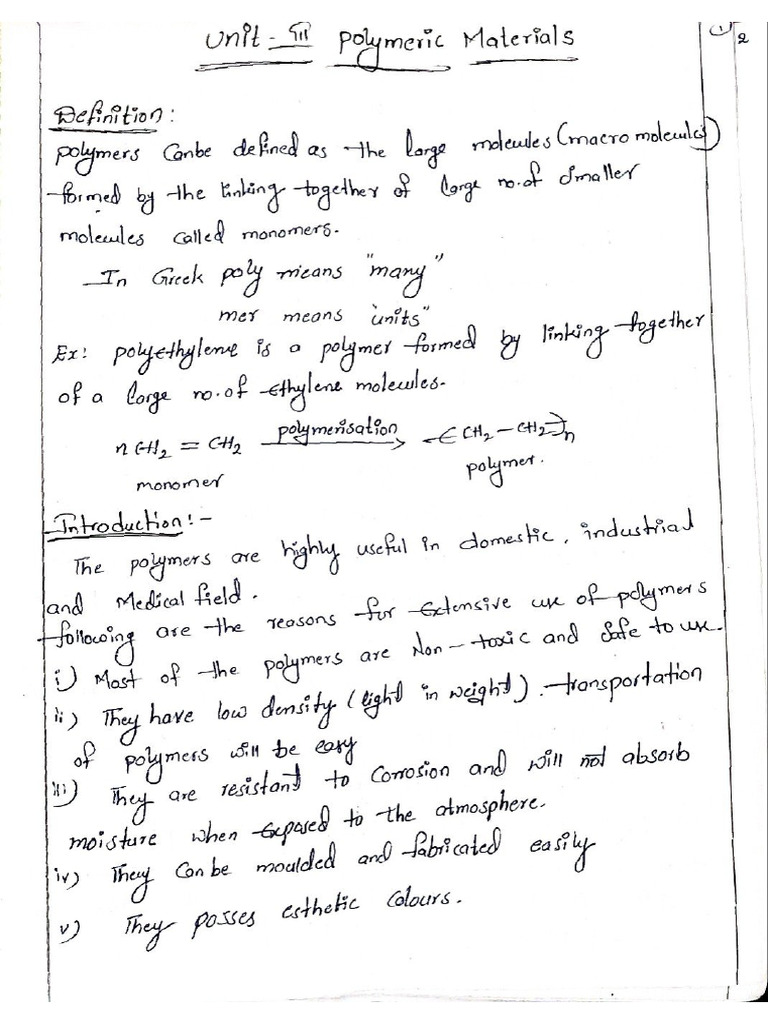 Unit - III Polymeric Materials
1 2
Definition:
polymers Canbe defined as the large molecules (macro molecules)
formed by the linking together of large no.of smaller
molecules called monomers.
In Greek poly means "many"
mer means "units"
Ex: polyethylene is a polymer formed by linking together
of a large no.of ethylene molecules.
n CH2 = CH2 polymerisation → -[CH2 - CH2-]n
monomer polymer.
Introduction:-
The polymers are highly useful in domestic, industrial
and Medical field.
following are the reasons for Extensive use of polymers
i) Most of the polymers are Non-toxic and Safe to use.
ii) They have low density (light in weight). transportation
of polymers will be easy
iii) They are resistant to Corrosion and will not absorb
moisture when exposed to the atmosphere.
iv) They Can be moulded and fabricated easily
v) They posses esthetic Colours.